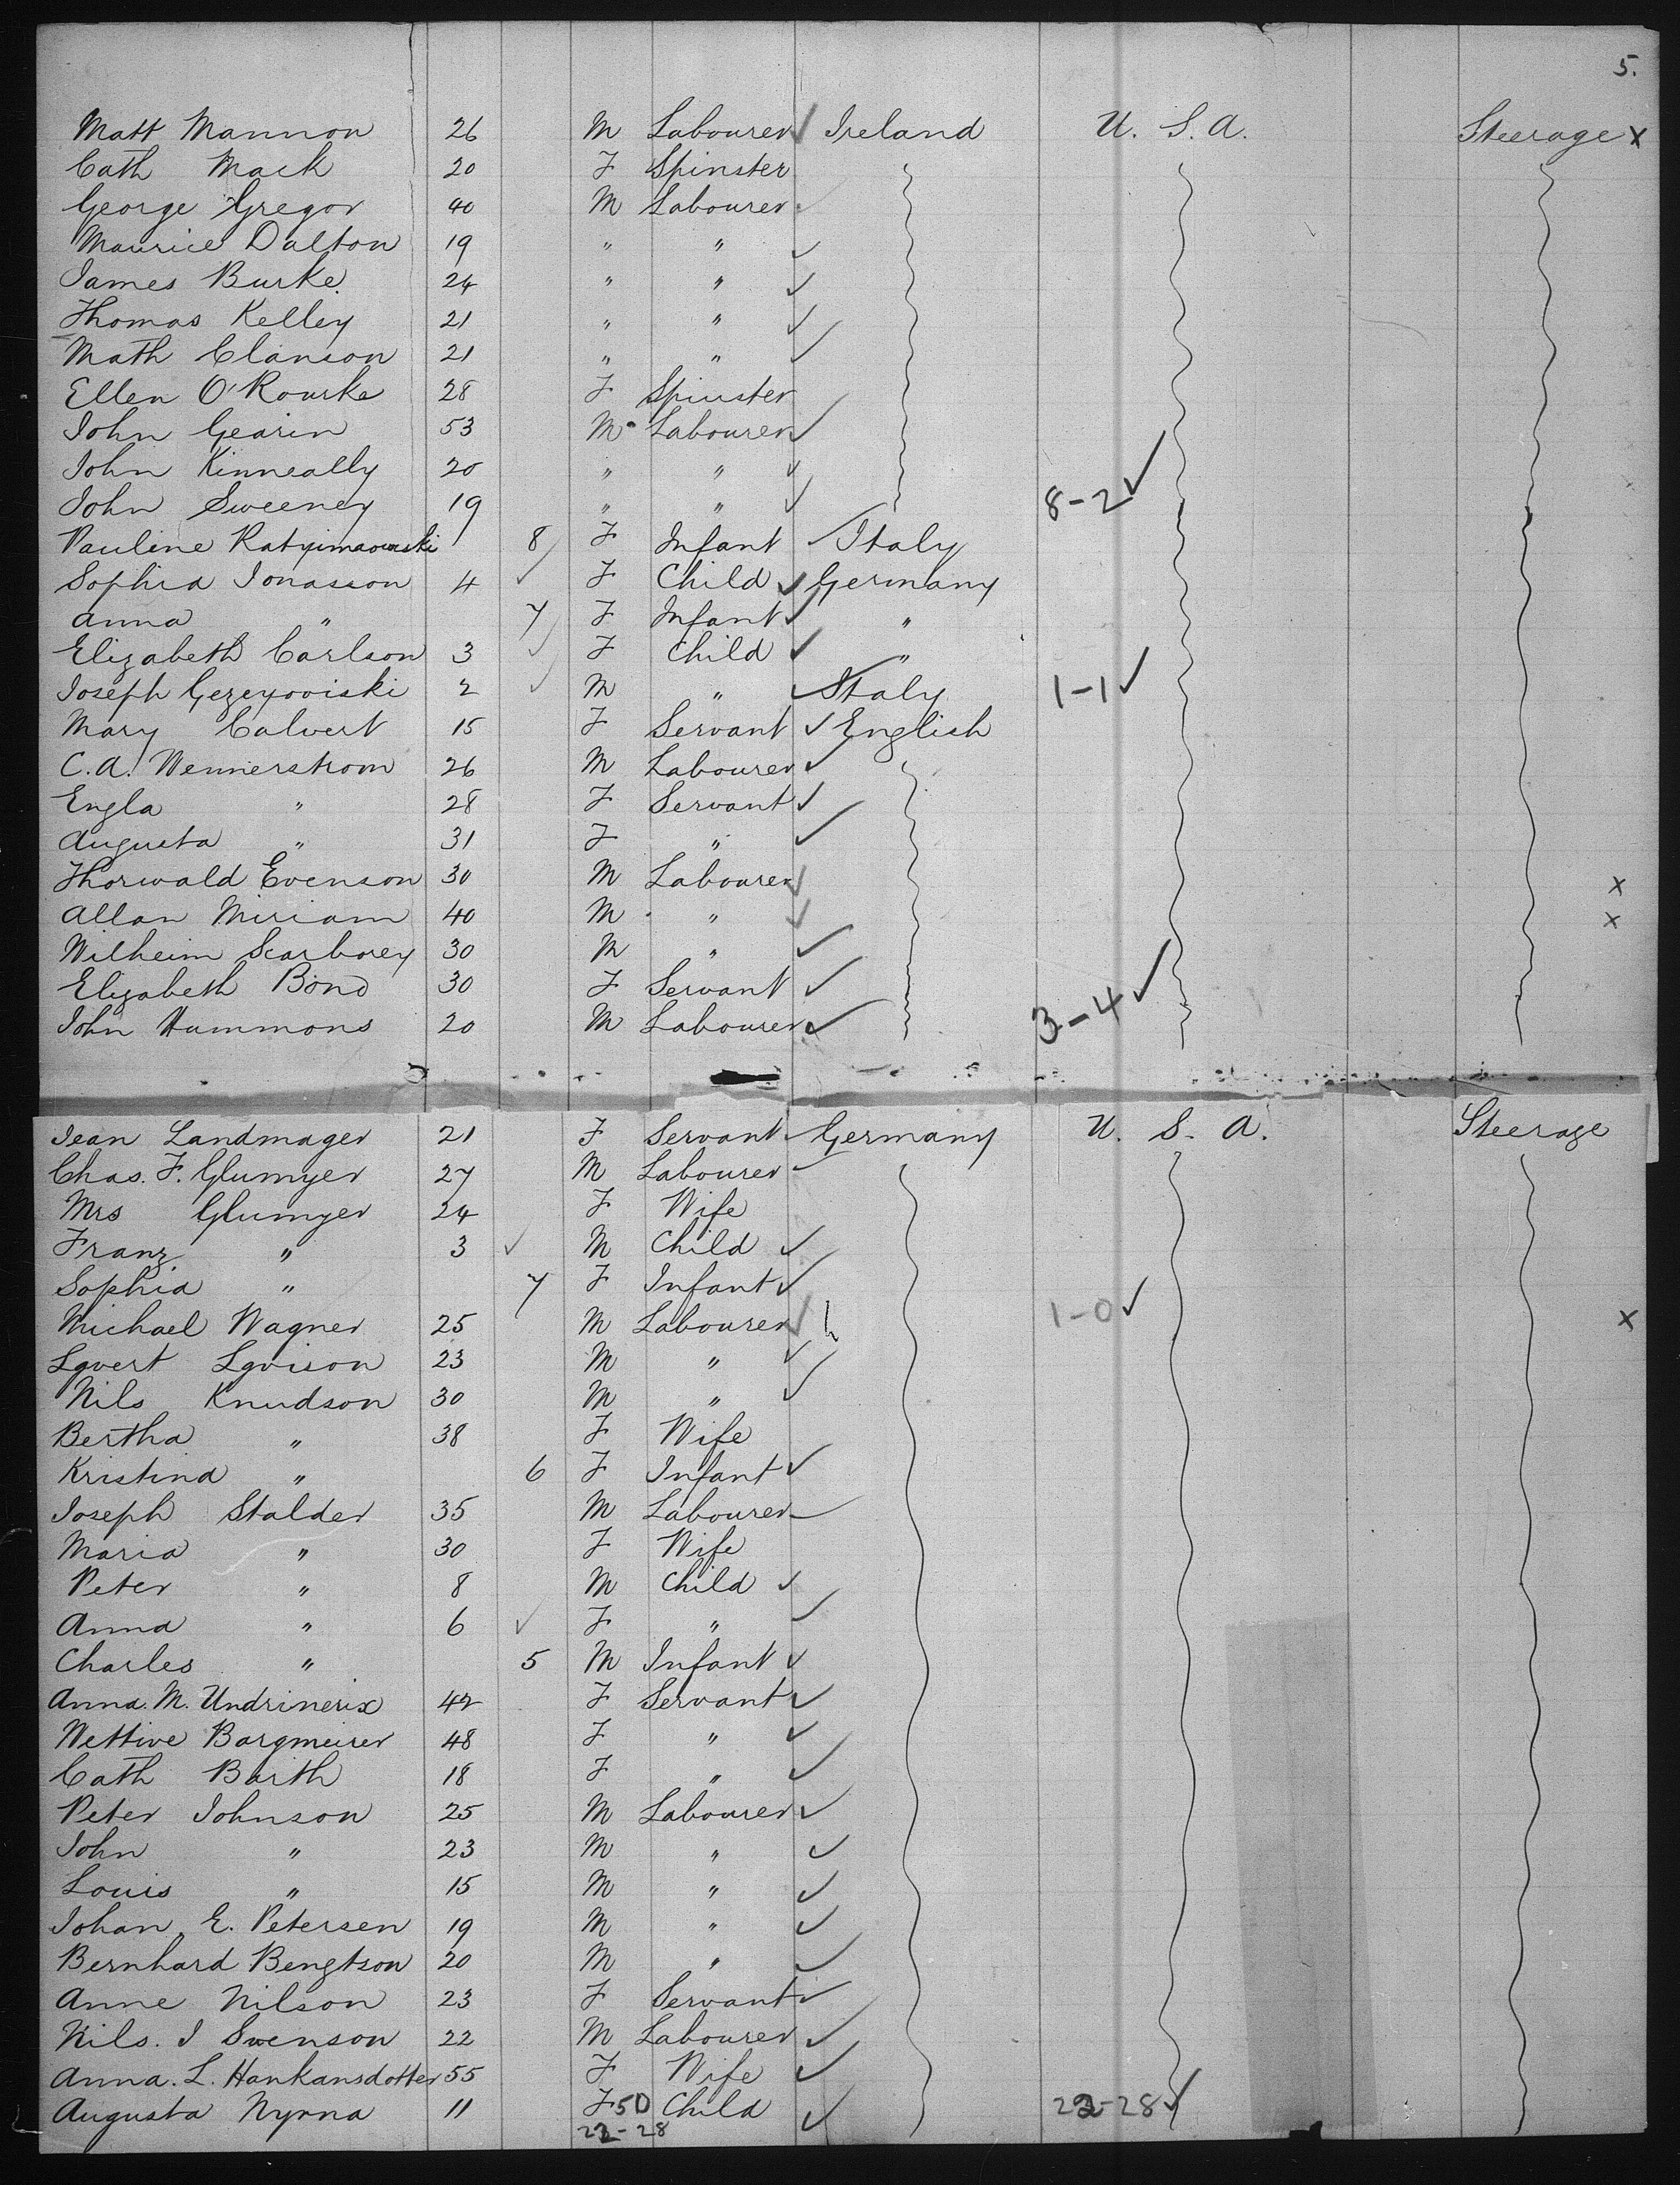 5.
Matt Mannon 26 M Labourer Ireland U. S. A. Steerage x
Cath Mack 20 F Spinster
George Gregor 40 M Labourer
Maurice Dalton 19 " "
James Burke 24 " "
Thomas Kelley 21 " "
Math Clanson 21 " "
Ellen O'Rourke 28 F Spinster
John Gearin 53 M Labourer
John Kinneally 20 " "
John Sweeney 19 " " 8-2 ✓
Pauline 8 F Infant Italy
Sophia Jonasson 4 F Child Germany
Anna " 7 F Infant "
Elizabeth Carlson 3 F Child "
Joseph 2 M " Italy 1-1 ✓
Mary Calvert 15 F Servant English
C. A. Wennerstrom 26 M Labourer
Engla " 28 F Servant
Augusta " 31 F "
Thorwald Evenson 30 M Labourer x
Allan Miriam 40 M " x
Wilheim Scarborey 30 M "
Elizabeth Bond 30 F Servant 3-4 ✓
John Hammons 20 M Labourer
Jean Landmager 21 F Servant Germany U. S. A. Steerage
Chas. F. Glumyer 27 M Labourer
Mrs Glumyer 24 F Wife
Franz " 3 M Child
Sophia " 7 F Infant
Michael Wagner 25 M Labourer 1-0 ✓ x
23 M "
Nils Knudson 30 M "
Bertha " 38 F Wife
Kristina " 6 F Infant
Joseph Stalder 35 M Labourer
Maria " 30 F Wife
Peter " 8 M Child
Anna " 6 F "
Charles " 5 M Infant
Anna. M. Undrinerix 42 F Servant
Nettive Bargmeirer 48 F "
Cath Barth 18 F "
Peter Johnson 25 M Labourer
John " 23 M "
Louis " 15 M "
Johan. E. Petersen 19 M "
Bernhard Bengtson 20 M "
Anne Nilson 23 F Servant
Nils. J Swenson 22 M Labourer
Anna. L. Hankansdotter 55 F Wife
Augusta Nyrna 11 F 50 Child 22-28 ✓
22-28